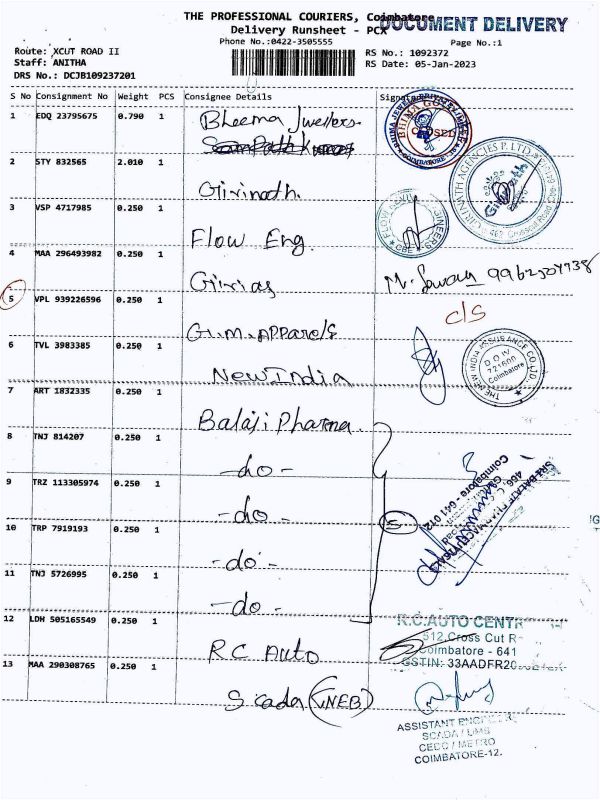 THE PROFESSIONAL COURIERS, Coimbatore
DOCUMENT DELIVERY
Delivery Runsheet - PCX
Phone No.:0422-3505555
Page No.:1
Route: XCUT ROAD II
RS No.: 1092372
Staff: ANITHA
RS Date: 05-Jan-2023
DRS No.: DCJB109237201
S No Consignment No Weight PCS Consignee Details Signature
1 EDQ 23795675 0.790 1 Bheema Jwellers
CLOSED
COIMBATORE
2 STY 832565 2.010 1 Girinath
3 VSP 4717985 0.250 1 Flow Eng.
4 MAA 296493982 0.250 1 Girias
5 VPL 939226596 1 0.250 1 G.M. APParels
C/S
6 TVL 3983385 0.250 1 New India
THE NEW INDIA ASSURANCE CO. LTD.
D O IV
721600
Coimbatore
7 ART 1832335 0.250 1 Balaji Pharma
8 TNJ 814207 0.250 1 -do-
9 TRZ 113305974 0.250 1 -do-
Coimbatore - 641 012
10 TRP 7919193 0.250 1 -do-
5
11 TNJ 5726995 0.250 1 -do-
12 LDH 505165549 0.250 1 RC Auto
R.C.AUTO CENTR
512,Cross Cut R
Coimbatore - 641
GSTIN: 33AADFR20
13 MAA 290308765 0.250 1 Scada (TNEB)
ASSISTANT ENGINEER
SCADA / DMS
CEDC / METRO
COIMBATORE-12.